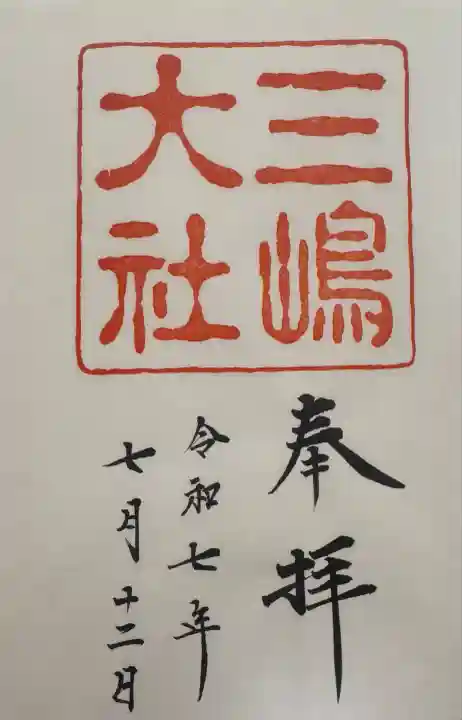 三嶋
大社
奉拝
令和七年
七月十二日